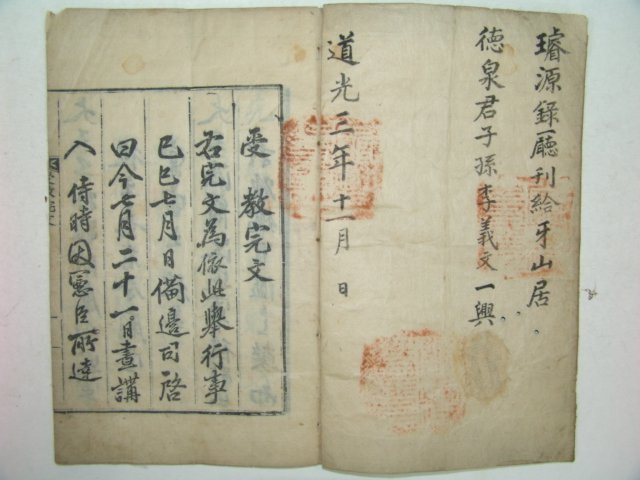 璿源錄廳刊給牙山居
德泉君子孫李義文一興
道光三年十一月 日
受 教完文
右完文爲依此擧行事
己巳七月日備邊司啓
曰今七月二十一日晝講
入 侍時因憲臣所達